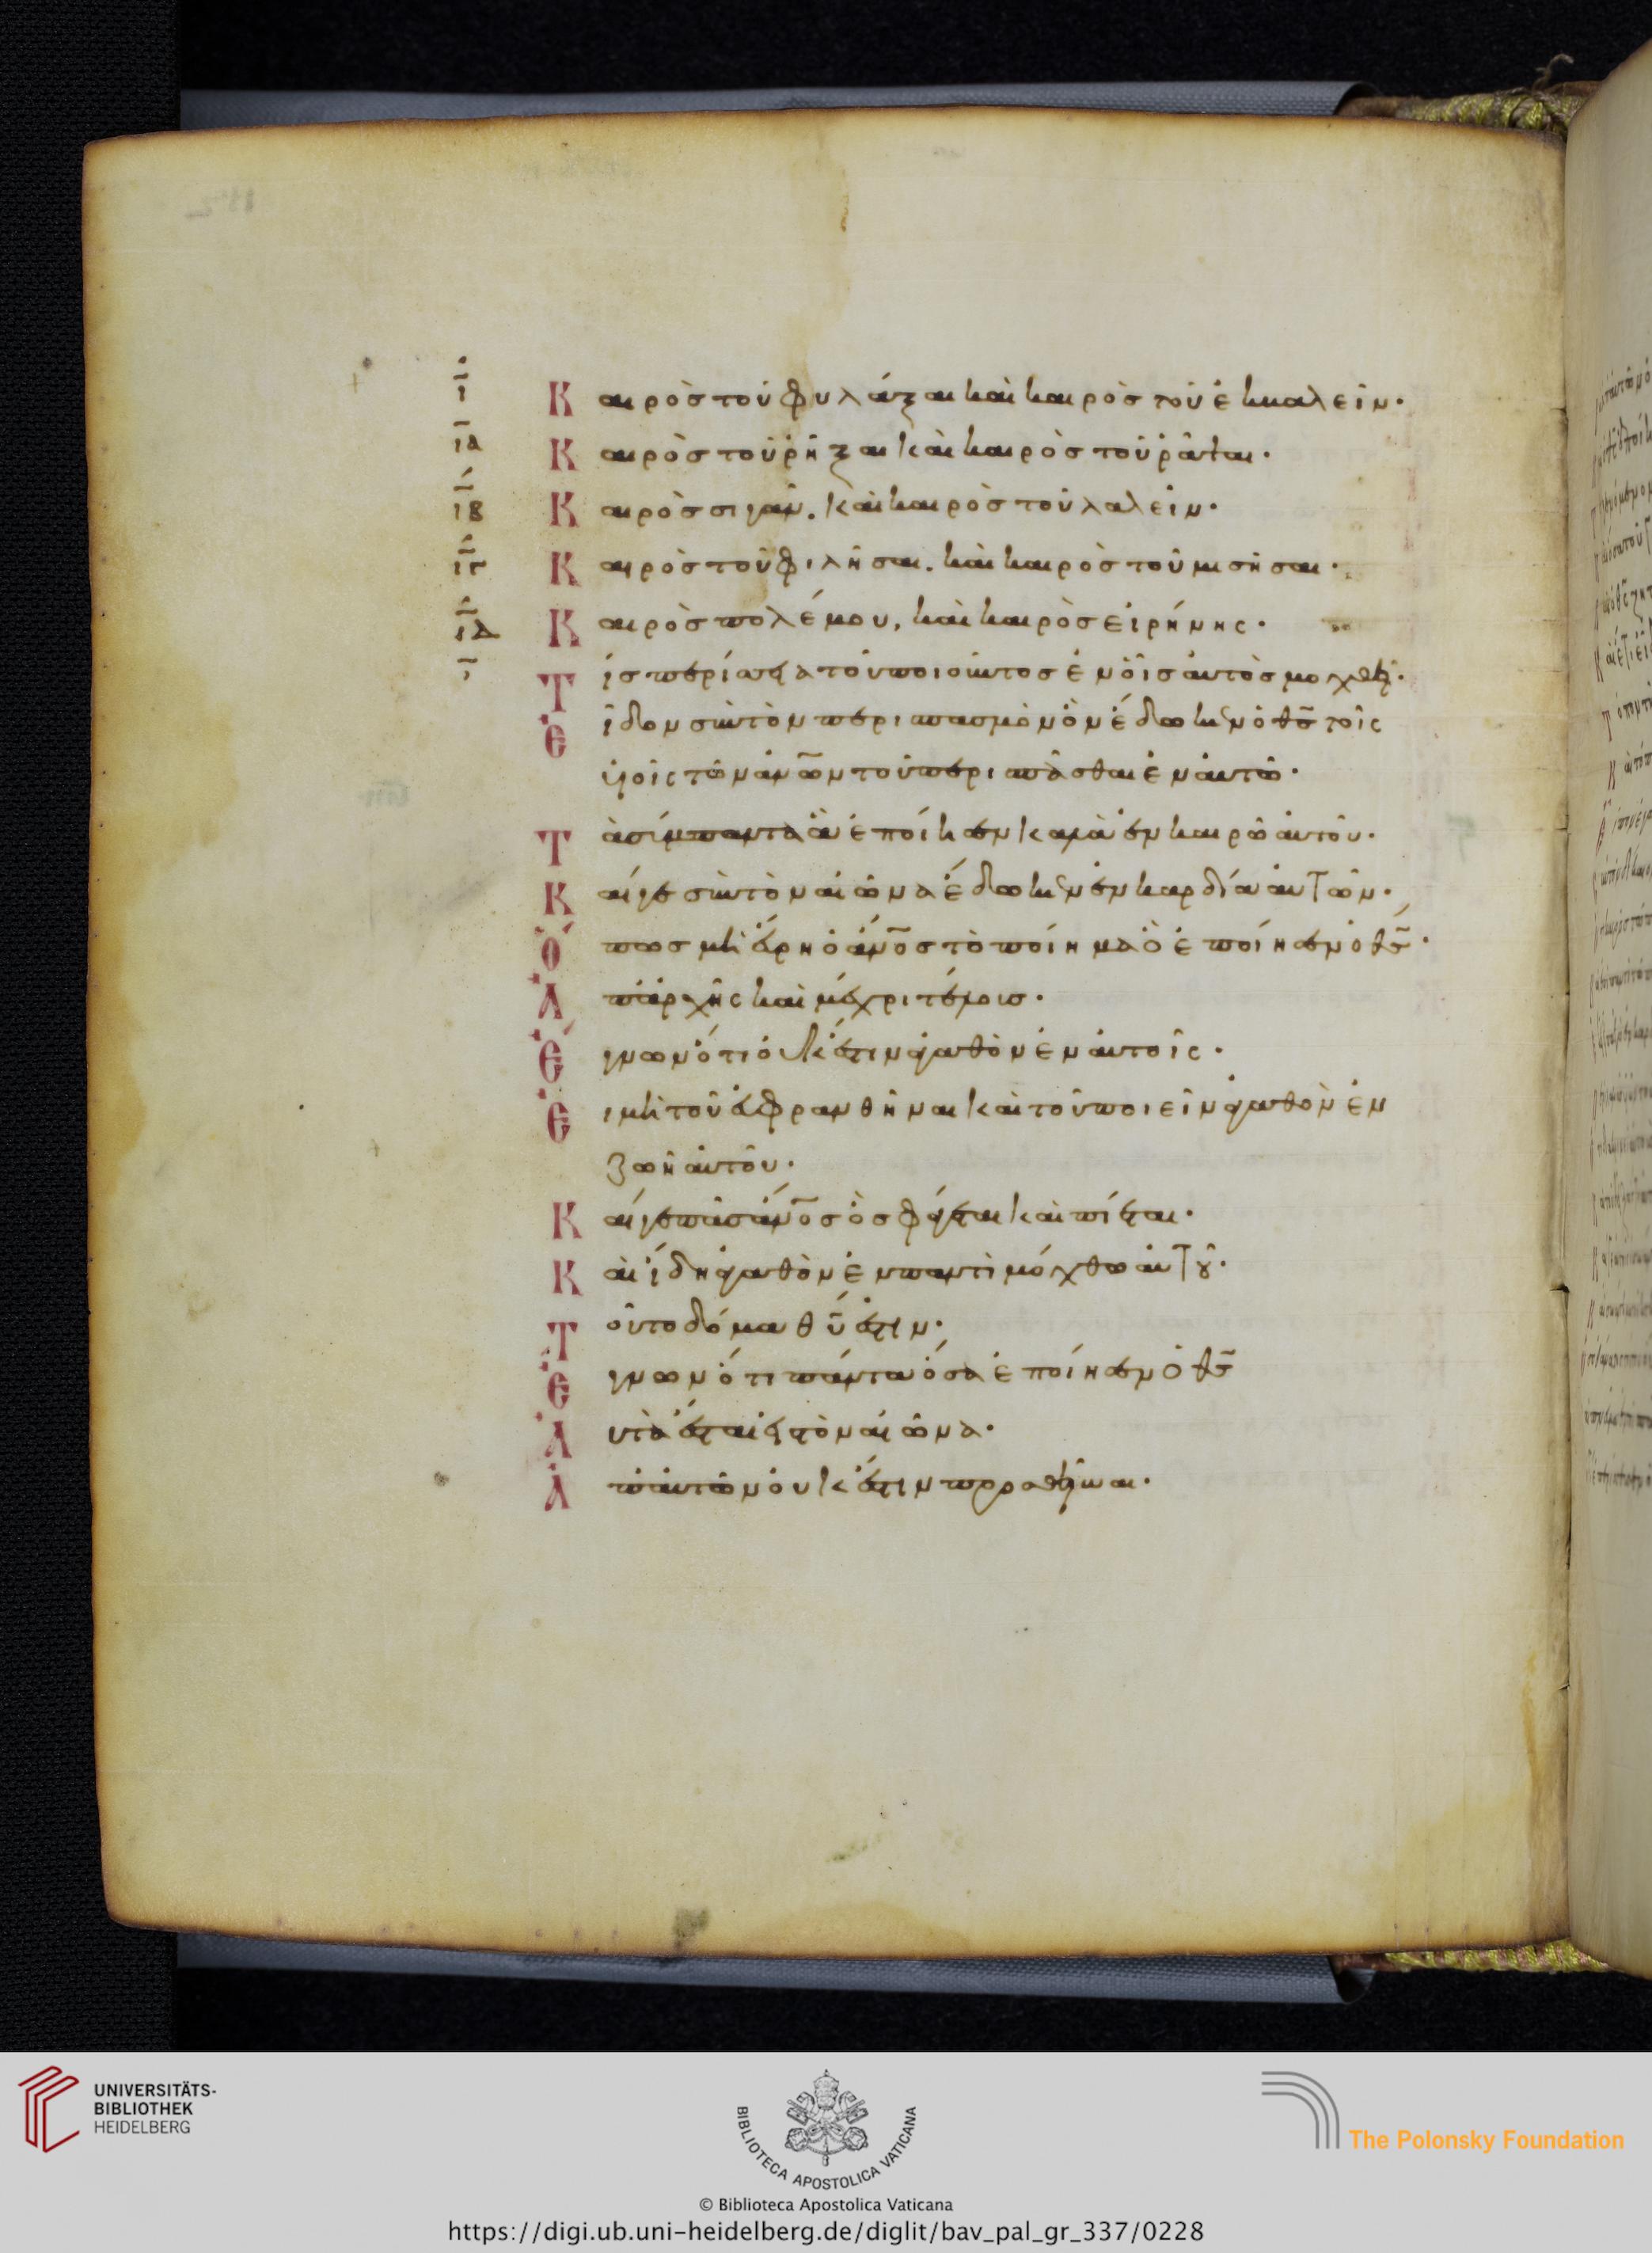 ι Καιρὸς τοῦ φυλάξαι καὶ καιρὸς τοῦ ἐκκαλεῖν·
ια Καιρὸς τοῦ ῥῆξαι καὶ καιρὸς τοῦ ῥᾶψαι·
ιβ Καιρὸς σιγᾶν. καὶ καιρὸς τοῦ λαλεῖν·
ιγ Καιρὸς τοῦ φιλῆσαι. καὶ καιρὸς τοῦ μισῆσαι·
ιδ Καιρὸς πολέμου, καὶ καιρὸς εἰρήνης·
Τίς περίσσεια τοῦ ποιοῦντος ἐν οἷς αὐτὸς μοχθεῖ·
Εἶδον σὺν τὸν περισπασμὸν ὃν ἔδωκεν ὁ θς τοῖς
υἱοῖς τῶν ἀνων τοῦ περισπᾶσθαι ἐν αὐτῶ·
Τὰ σύμπαντα ἃ ἐποίησεν καλὰ ἐν καιρῶ αὐτοῦ·
Καί γε σὺν τὸν αἰῶνα ἔδωκεν ἐν καρδία αὐτῶν·
Ὅπως μὴ εὕρη ὁ ἄνος τὸ ποίημα ὃ ἐποίησεν ὁ θς·
Ἀπ' ἀρχῆς καὶ μέχρι τέλους·
Ἔγνων ὅτι οὐκ ἔστιν ἀγαθὸν ἐν αὐτοῖς·
Εἰ μὴ τοῦ εὐφρανθῆναι καὶ τοῦ ποιεῖν ἀγαθὸν ἐν
ζωῆ αὐτοῦ·
Καί γε πᾶς ἄνος ὃς φάγεται καὶ πίεται·
Καὶ ἴδη ἀγαθὸν ἐν παντὶ μόχθω αὐτοῦ·
Τοῦτο δόμα θυ ἐστιν·
Ἔγνων ὅτι πάντα ὅσα ἐποίησεν ὁ θς
Αὐτὰ ἔσται εἰς τὸν αἰῶνα·
Ἐπ' αὐτῶν οὐκ ἔστιν προσθεῖναι·
UNIVERSITÄTS-
BIBLIOTHEK
HEIDELBERG
BIBLIOTECA APOSTOLICA VATICANA
© Biblioteca Apostolica Vaticana
The Polonsky Foundation
https://digi.ub.uni-heidelberg.de/diglit/bav_pal_gr_337/0228